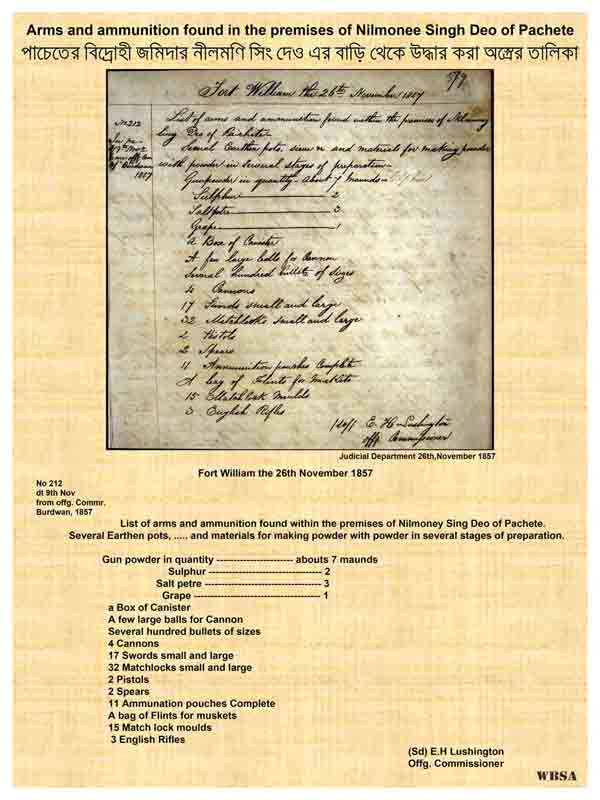 Arms and ammunition found in the premises of Nilmonee Singh Deo of Pachete
পাচেতের বিদ্রোহী জমিদার নীলমণি সিং দেও এর বাড়ি থেকে উদ্ধার করা অস্ত্রের তালিকা
79
Fort William the 26th November 1857
No 212
1857
List of arms and ammunition found within the premises of Nilmoney
Sing Deo of Pachete.
Several Earthen pots, and materials for making powder
with powder in several stages of preparation
Gunpowder in quantity - About 7 Maunds
Sulphur 2
Salpetre 3
Grape 1
a Box of Canister
A few large balls for Cannon
Several hundred bullets of sizes
4 Cannons
17 Swords small and large
32 Matchlocks small and large
2 Pistols
2 Spears
11 Ammunition pouches Complete
A bag of Flints for Muskets
15 Matchlock Moulds
3 English Rifles
E. H Lushington
offg Commissioner
Judicial Department 26th,November 1857
Fort William the 26th November 1857
No 212
dt 9th Nov
from offg. Commr.
Burdwan, 1857
List of arms and ammunition found within the premises of Nilmoney Sing Deo of Pachete.
Several Earthen pots, ..... and materials for making powder with powder in several stages of preparation.
Gun powder in quantity ------------------------ abouts 7 maunds
Sulphur ------------------------------------ 2
Salt petre ------------------------------------- 3
Grape ---------------------------------------- 1
a Box of Canister
A few large balls for Cannon
Several hundred bullets of sizes
4 Cannons
17 Swords small and large
32 Matchlocks small and large
2 Pistols
2 Spears
11 Ammunation pouches Complete
A bag of Flints for muskets
15 Match lock moulds
3 English Rifles
(Sd) E.H Lushington
Offg. Commissioner
WBSA